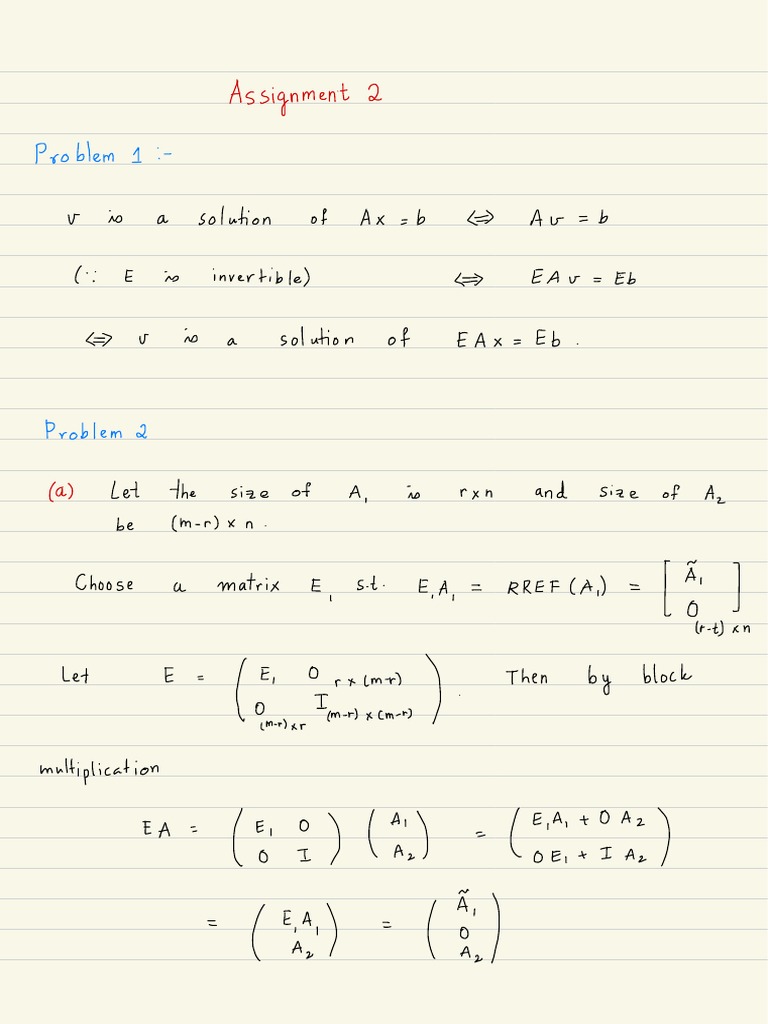 Assignment 2
Problem 1 :-
v is a solution of Ax = b ⇔ Av = b
(∵ E is invertible) ⇔ EAv = Eb
⇔ v is a solution of EAx = Eb.
Problem 2
(a) Let the size of A₁ is r×n and size of A₂
be (m-r) × n.
Choose a matrix E₁ s.t. E₁A₁ = RREF(A₁) = [ Ã₁
0 (r-t)×n ]
Let E = ( E₁ 0 r×(m-r)
0 (m-r)×r I (m-r)×(m-r) ) . Then by block
multiplication
EA = ( E₁ 0
0 I ) ( A₁
A₂ ) = ( E₁A₁ + 0 A₂
0E₁ + I A₂ )
= ( E₁A₁
A₂ ) = ( Ã₁
0
A₂ )